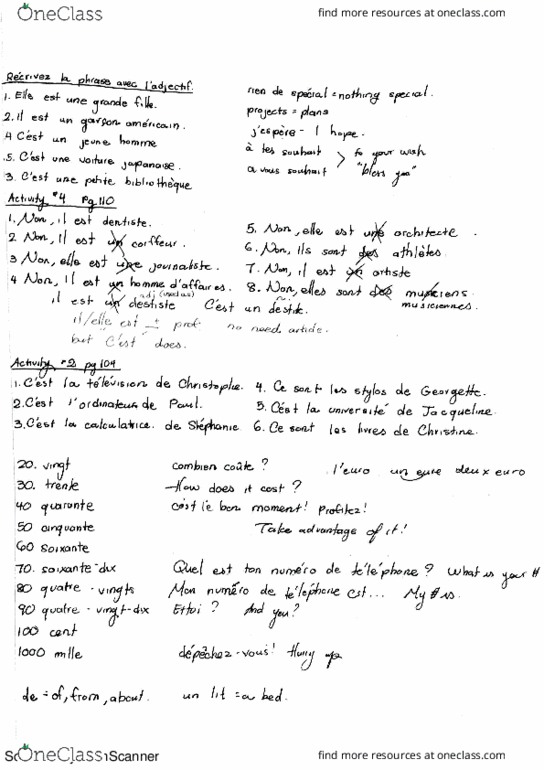 OneClass
find more resources at oneclass.com
Récrivez la phrase avec l'adjectif.
1. Elle est une grande fille.
2. Il est un garçon américain.
4 C'est un jeune homme
5. C'est une voiture japonaise.
3. C'est une petite bibliothèque
rien de spécial = nothing special.
projects = plans
j'espère - I hope.
à tes souhait > to your wish
a vous souhait "bless you"
Activity #4 Pg 110
1. Non, il est dentiste.
2 Non, il est un coiffeur.
3 Non, elle est une journaliste.
4 Non, il est un homme d'affaires.
5. Non, elle est une architecte.
6. Non, ils sont des athlètes.
7. Non, il est un artiste
8. Non, elles sont des musiciens
musiciennes.
il est un destiste C'est un
il/elle est + prof no need article.
but C'est does.
Activity #2 pg 109
1. C'est la télévision de Christophe.
2. C'est l'ordinateur de Paul.
3. C'est la calculatrice de Stéphanie
4. Ce sont les stylos de Georgette.
5. C'est la université de Jacqueline
6. Ce sont les livres de Christine.
20. vingt
30. trente
40 quarante
50 cinquante
60 soixante
70. soixante-dix
80 quatre-vingts
90 quatre-vingt-dix
100 cent
1000 mille
combien coûte ? l'euro un eure deux euro
How does it cost ?
c'est le bon moment! Profitez!
Take advantage of it!
Quel est ton numéro de téléphone ? What is your #
Mon numéro de téléphone est... My # is.
Et toi ? And you?
dépêchez-vous! Hurry up
de = of, from, about. un lit = a bed.
OneClass
Scanner
find more resources at oneclass.com